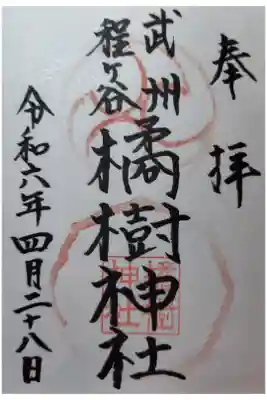 奉拝
武州
程ヶ谷
橘樹神社
令和六年四月二十八日
橘樹
神社